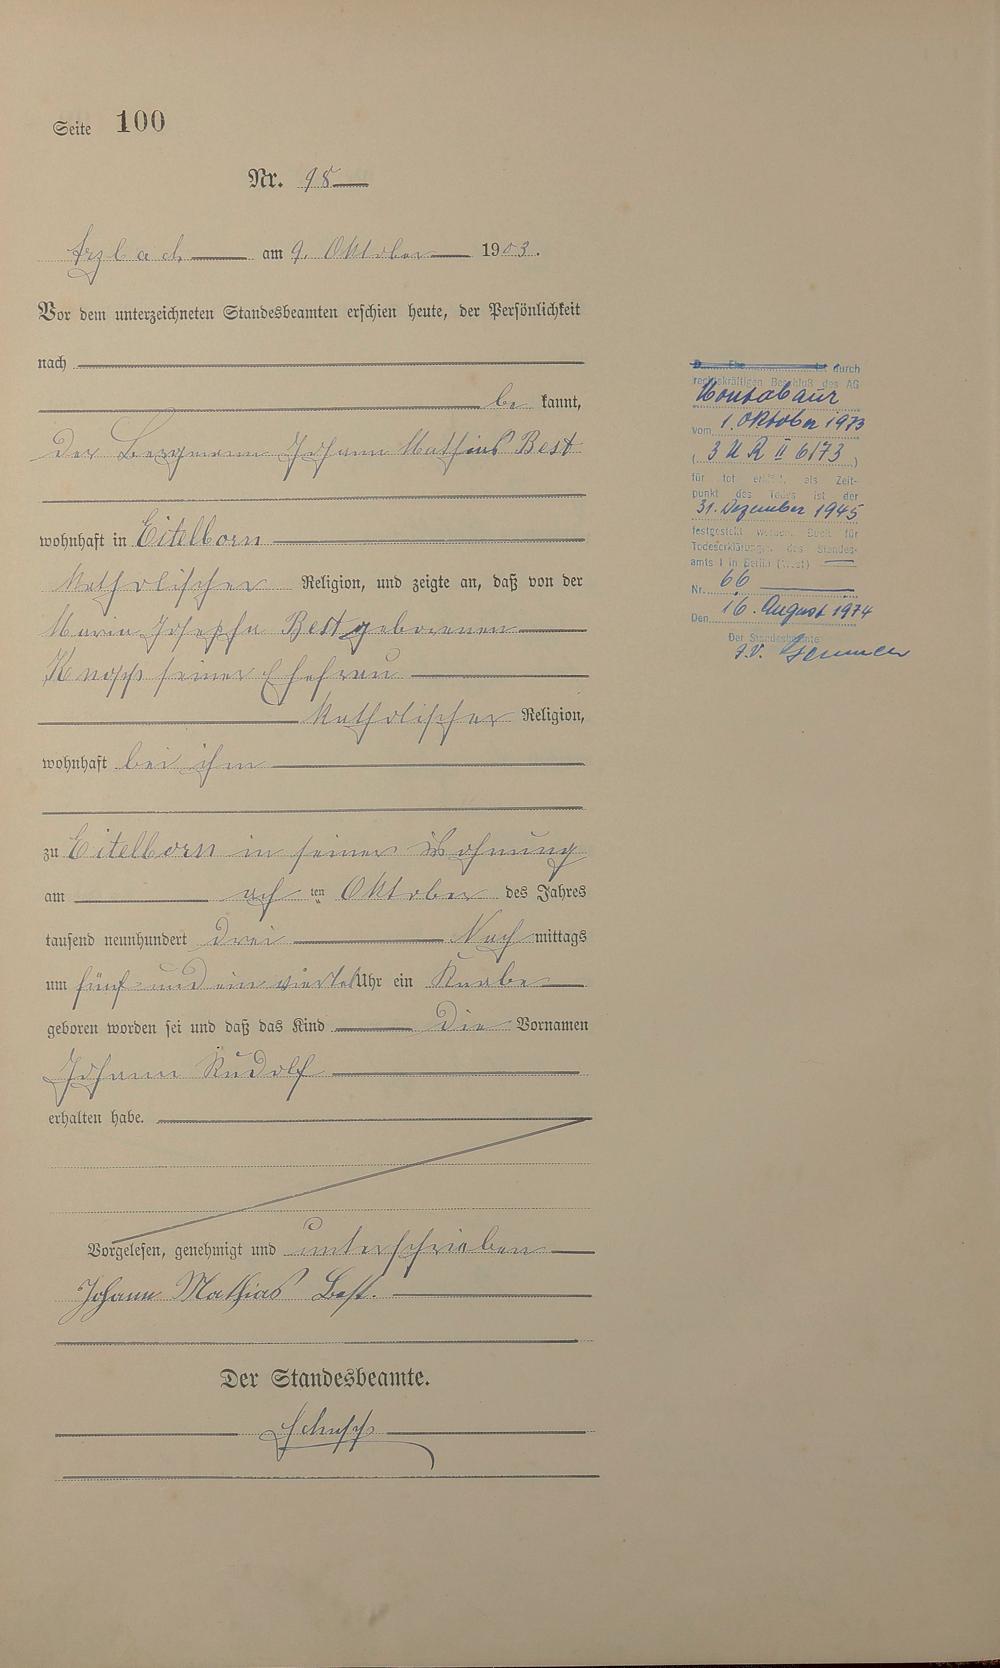 Seite 100
Nr. 98
Arzbach am 9. Oktober 1903.
Vor dem unterzeichneten Standesbeamten erschien heute, der Persönlichkeit
nach
be kannt,
der Bergmann Johann Mathias Best
wohnhaft in Eitelborn
katholischer Religion, und zeigte an, daß von der
Maria Josepha Best geborenen
Knopp seiner Ehefrau
katholischer Religion,
wohnhaft bei ihm
zu Eitelborn in seiner Wohnung
am ach ten Oktober des Jahres
tausend neunhundert drei Nach mittags
um fünf und ein viertel Uhr ein Knabe
geboren worden sei und daß das Kind die Vornamen
Johann Rudolf
erhalten habe.
Vorgelesen, genehmigt und unterschrieben
Johann Mathias Best.
Der Standesbeamte.
D Ehe ist durch
rechtskräftigen Beschluß des AG
Montabaur
vom 1. Oktober 1973
( 3 U R II 6/73 )
für tot erklärt, als Zeit-
punkt des Todes ist der
31. Dezember 1945
festgestellt worden. Buch für
Todeserklärungen des Standes-
amts I in Berlin (West)
Nr. 66
Den 16. August 1974
Der Standesbeamte
J.V.